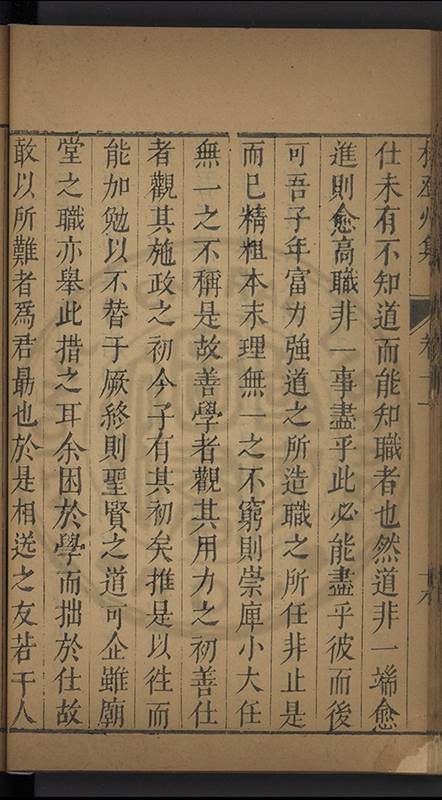 仕未有不知道而能知職者也然道非一端愈
進則愈高職非一事盡乎此必能盡乎彼而後
可吾子年富力強道之所造職之所任非止是
而已精粗本末理無一之不窮則崇庳小大任
無一之不稱是故善學者觀其用力之初善仕
者觀其施政之初今子有其初矣推是以徃而
能加勉以不替于厥終則聖賢之道可企雖廟
堂之職亦舉此措之耳余困於學而拙於仕故
敢以所難者爲君勗也於是相送之友若干人